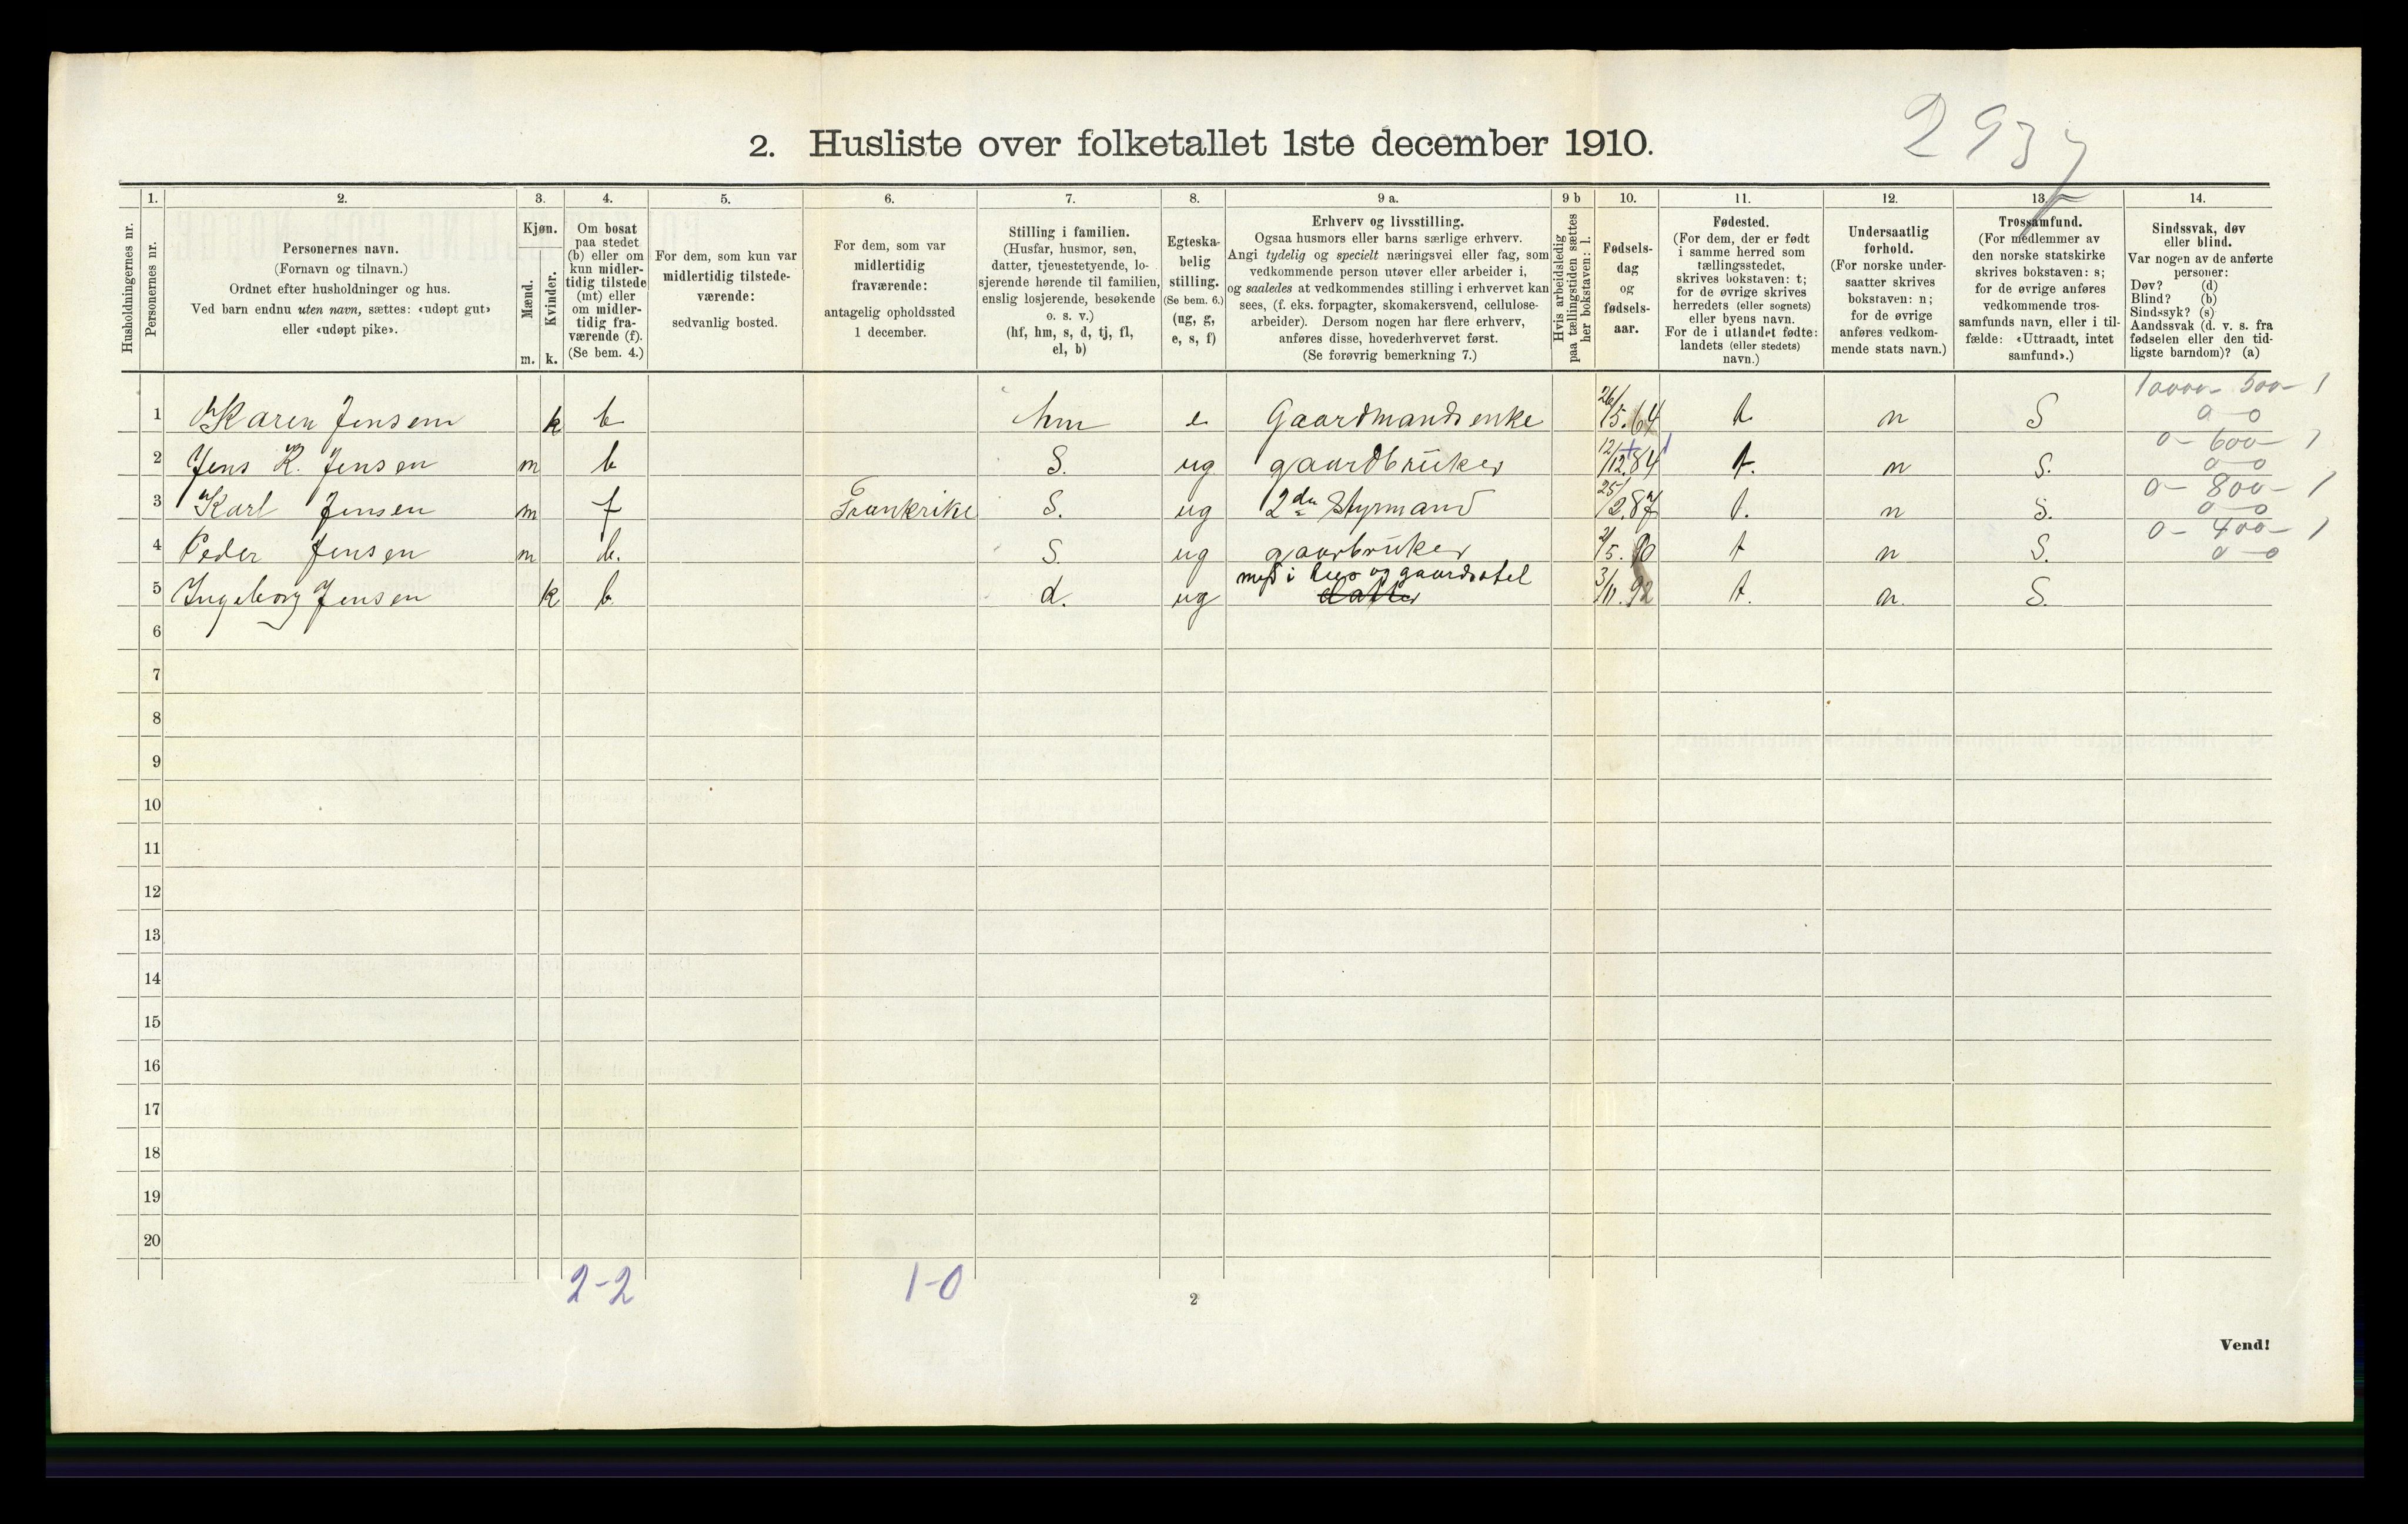 2937
2. Husliste over folketallet 1ste december 1910.
Husholdningernes nr.
1. Personernes nr.
2. Personernes navn.
(Fornavn og tilnavn.)
Ordnet efter husholdninger og hus.
Ved barn endnu uten navn, sættes: «udøpt gut»
eller «udøpt pike».
3. Kjøn.
Mænd. m.
Kvinder. k.
4. Om bosat
paa stedet
(b) eller om
kun midler-
tidig tilstede
(mt) eller
om midler-
tidig fra-
værende (f).
(Se bem. 4.)
5. For dem, som kun var
midlertidig tilstede-
værende:
sedvanlig bosted.
6. For dem, som var
midlertidig
fraværende:
antagelig opholdssted
1 december.
7. Stilling i familien.
(Husfar, husmor, søn,
datter, tjenestetyende, lo-
sjerende hørende til familien,
enslig losjerende, besøkende
o. s. v.)
(hf, hm, s, d, tj, fl,
el, b)
8. Egteska-
belig
stilling.
(Se bem. 6.)
(ug, g,
e, s, f)
9 a. Erhverv og livsstilling.
Ogsaa husmors eller barns særlige erhverv.
Angi tydelig og specielt næringsvei eller fag, som
vedkommende person utøver eller arbeider i,
og saaledes at vedkommendes stilling i erhvervet kan
sees, (f. eks. forpagter, skomakersvend, cellulose-
arbeider). Dersom nogen har flere erhverv,
anføres disse, hovederhvervet først.
(Se forøvrig bemerkning 7.)
9 b Hvis arbeidsledig
paa tællingstiden sættes
her bokstaven: l.
10. Fødsels-
dag
og
fødsels-
aar.
11. Fødested.
(For dem, der er født
i samme herred som
tællingsstedet,
skrives bokstaven: t;
for de øvrige skrives
herredets (eller sognets)
eller byens navn.
For de i utlandet fødte:
landets (eller stedets)
navn.)
12. Undersaatlig
forhold.
(For norske under-
saatter skrives
bokstaven: n;
for de øvrige
anføres vedkom-
mende stats navn.)
13. Trossamfund.
(For medlemmer av
den norske statskirke
skrives bokstaven: s;
for de øvrige anføres
vedkommende tros-
samfunds navn, eller i til-
fælde: «Uttraadt, intet
samfund».)
14. Sindssvak, døv
eller blind.
Var nogen av de anførte
personer:
Døv? (d)
Blind? (b)
Sindssyk? (s)
Aandssvak (d. v. s. fra
fødselen eller den tid-
ligste barndom)? (a)
10000- 500- 1
1 Karen Jensen k b hm e Gaardmandsenke 26/5.64 t n S 0-0
0- 600- 1
2 Jens K. Jensen m b S. ug gaardbruker 12/12.84 t. n S. 0-0
0- 800- 1
3 Karl Jensen m f Frankrike S. ug 2den Styrmand 25/3.87 t. n S. 0-0
0- 400- 1
4 Peder Jensen m b. S. ug gaarbruker 2/5.90 t n S. 0-0
med i hus og gaardsstel
5 Ingeborg Jensen k b d. ug datter 3/11.92 t. n. S.
6
7
8
9
10
11
12
13
14
15
16
17
18
19
20
2-2 1-0
2
Vend!